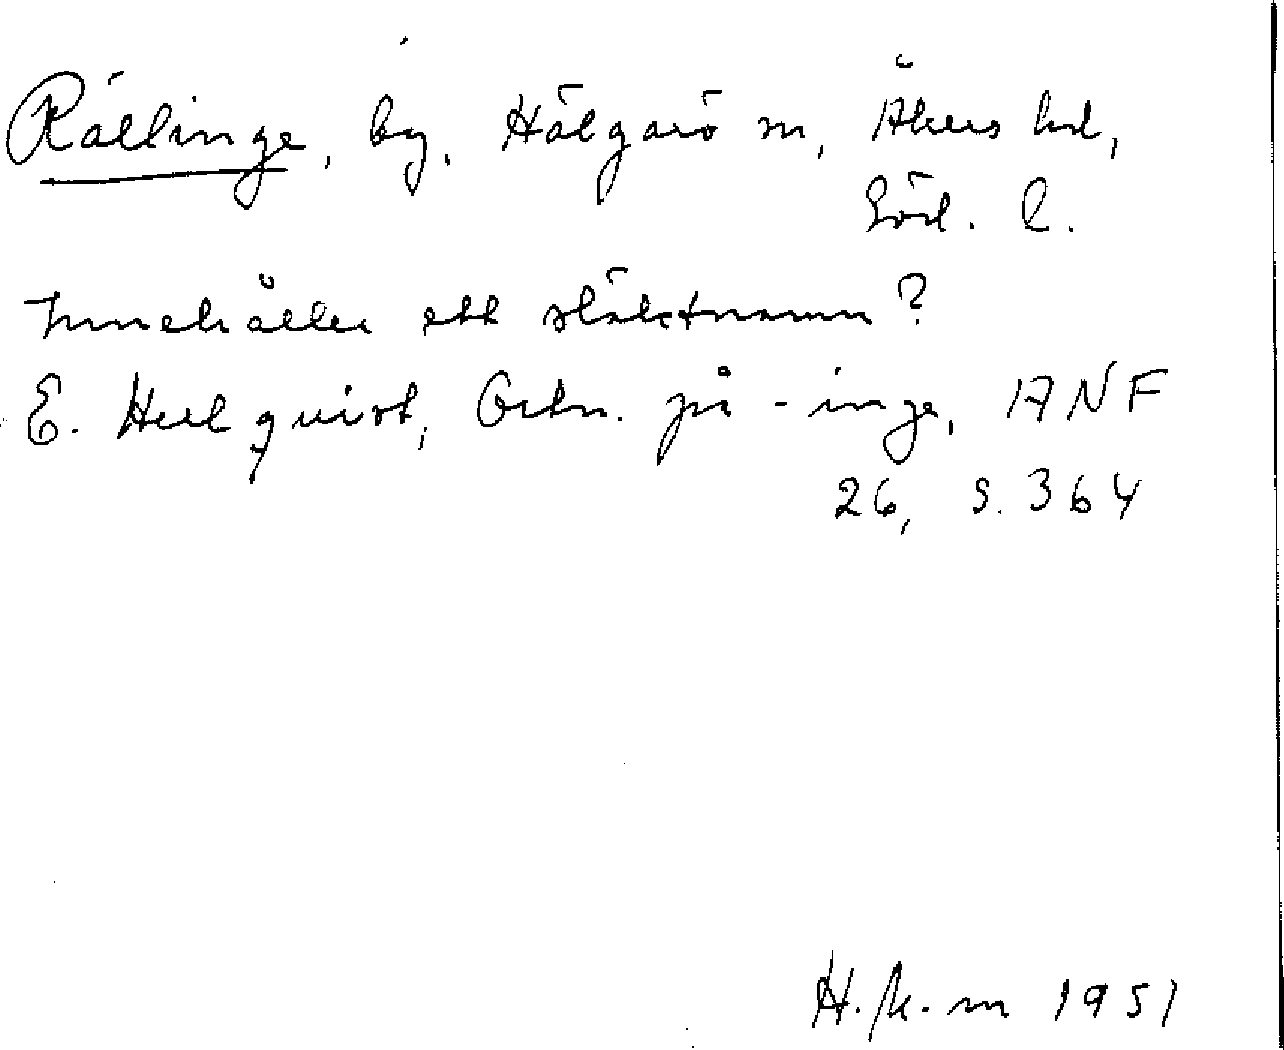 Rällinge, by, Hälgarö sn, Åkers hd,
Söd. l.
Innehåller ett släktnamn?
E. Hellquist, Ortn. på -inge, ANF
26, s. 364
1951